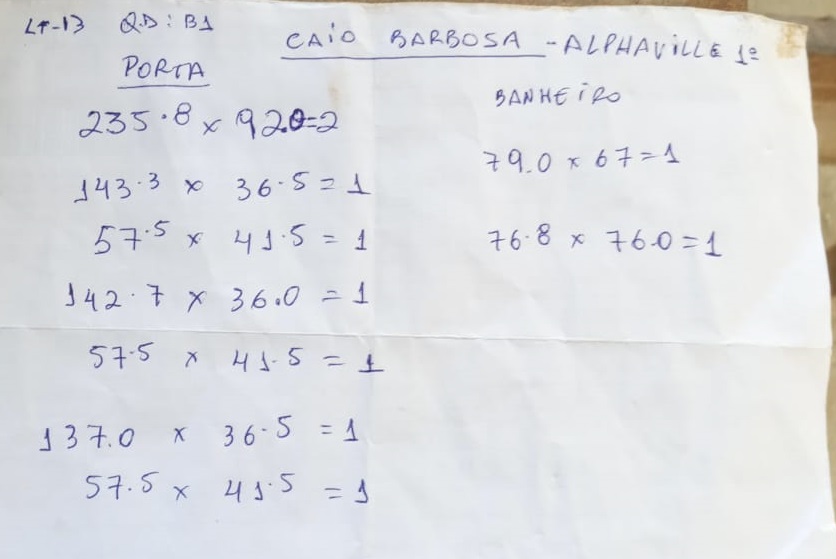 LT-13 QD: B1
CAIO BARBOSA - ALPHAVILLE 1º
PORTA
235.8 x 92.0=2
143.3 x 36.5 = 1
57.5 x 41.5 = 1
142.7 x 36.0 = 1
57.5 x 41.5 = 1
137.0 x 36.5 = 1
57.5 x 41.5 = 1
BANHEIRO
79.0 x 67 = 1
76.8 x 76.0 = 1